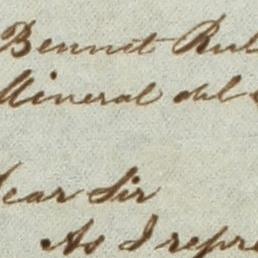 Bennet Rul
Mineral del
Dear Sir
As I repre